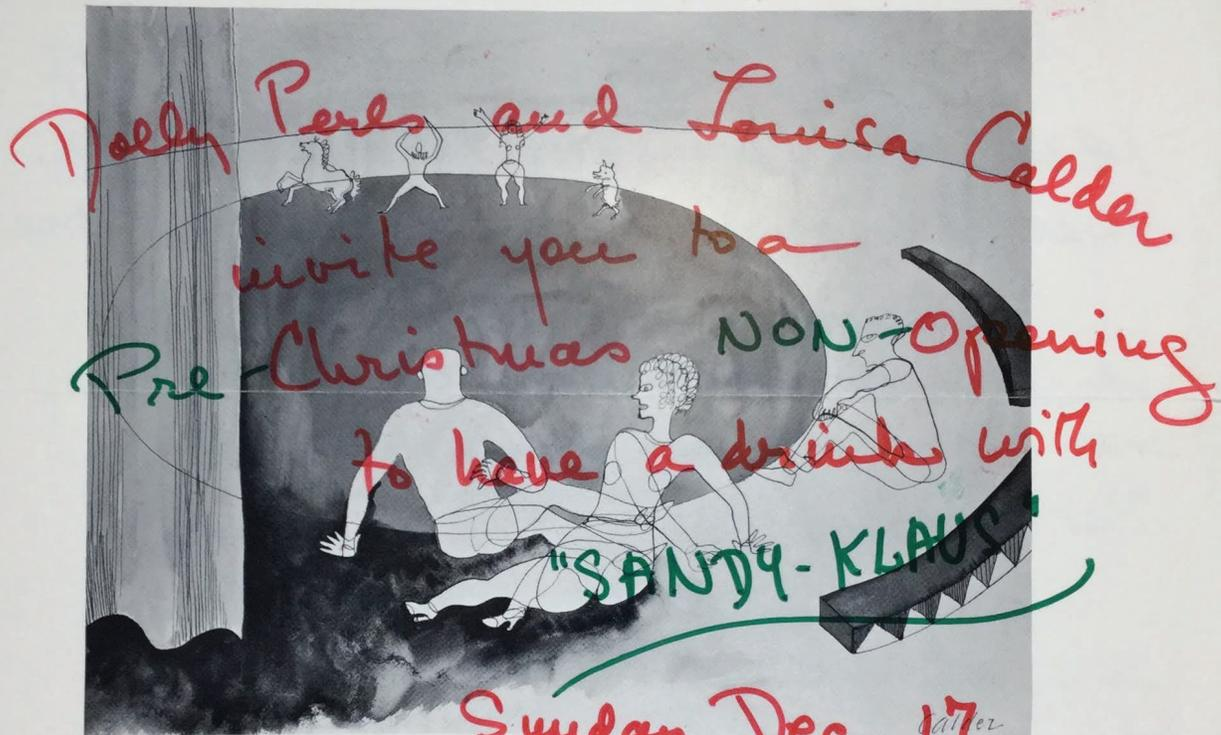 Dolly Perls and Louisa Calder
invite you to a
Pre-Christmas NON-Opening
to have a drink with
"SANDY-KLAUS"
Sunday Dec 17
Calder